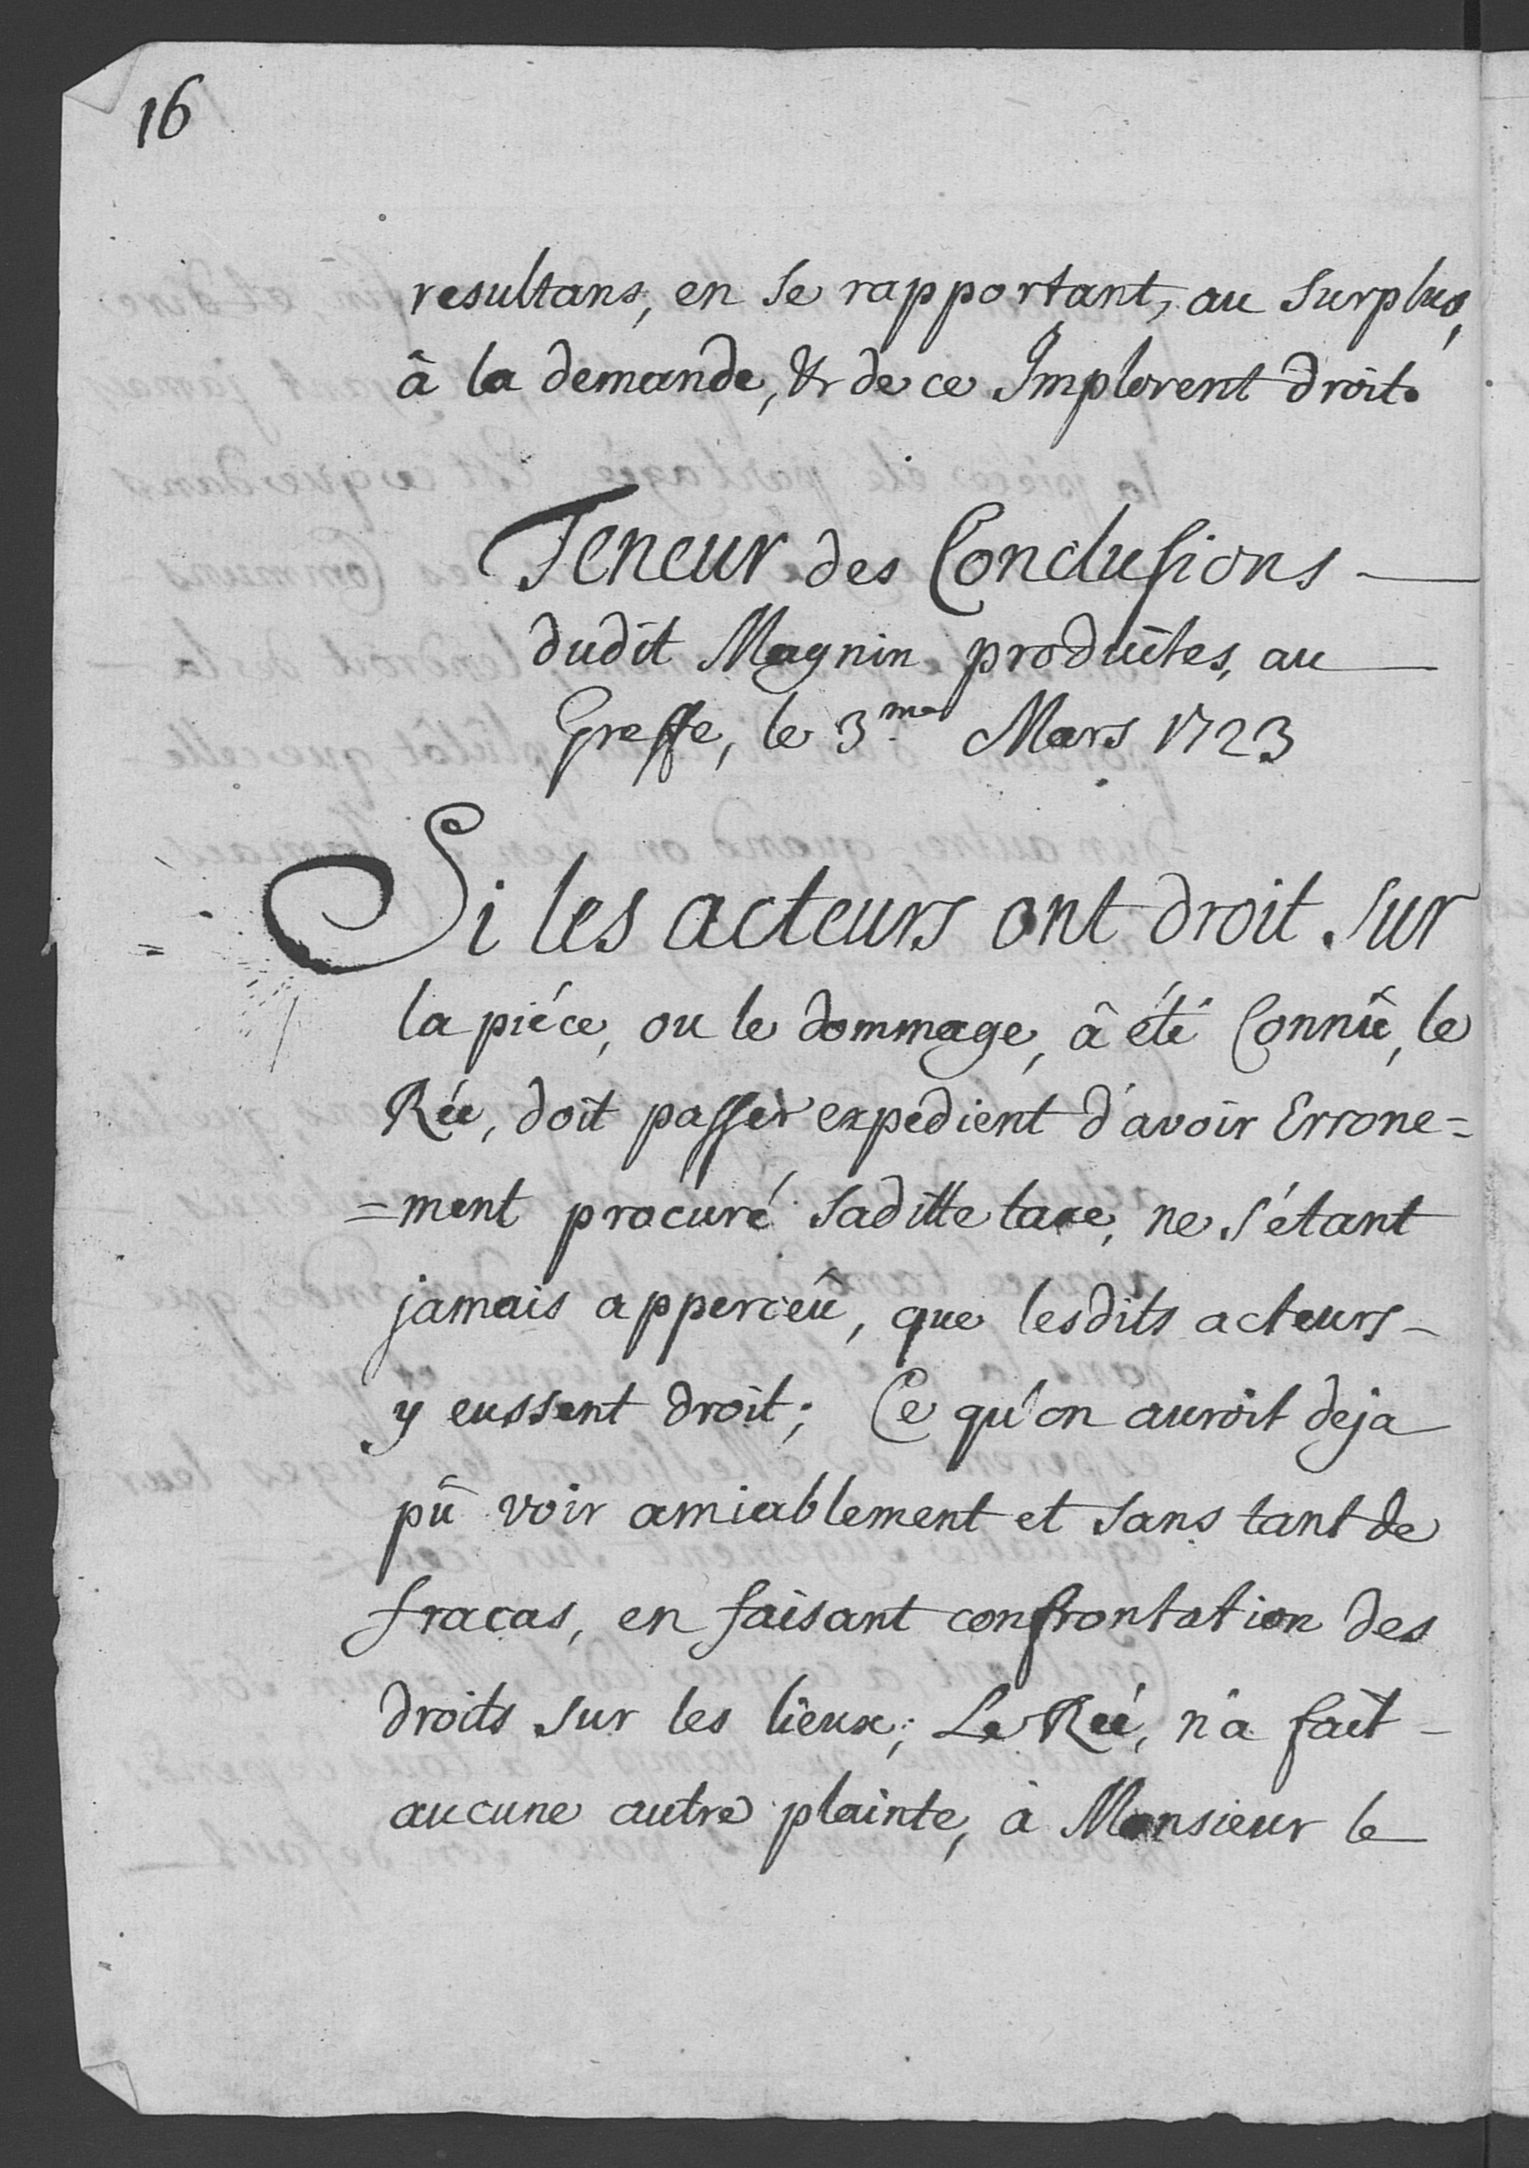 16
resultans, en se rapportant, au surplus,
â la demande, & de ce Implorent droit.
Teneur des Conclusions
dudit Magnin produites, au
Greffe, le 3.me Mars 1723
Si les acteurs ont droit sur
la piéce, ou le dommage, â été Connû, le
Rée, doit passer expedient d'avoir Errone=
=ment procuré saditte taxe, ne s'étant
jamais apperceû, que lesdits acteurs
y eussent droit; Ce qu'on auroit deja
pû voir amiablement et sans tant de
fracas, en faisant confrontation des
droits sur les lieux; Le Rée, n'a fait
aucune autre plainte, à Monsieur le